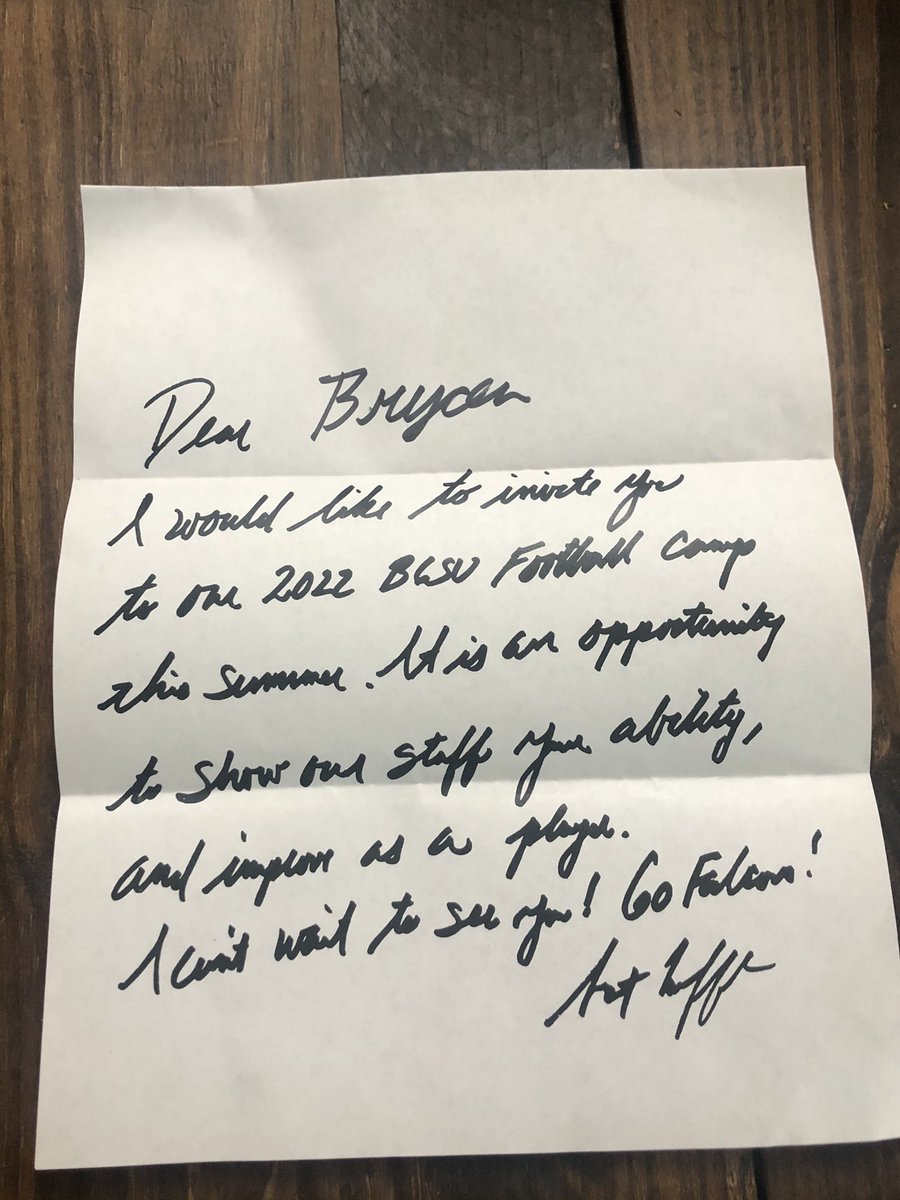 Dear Brycen
I would like to invite you
to our 2022 BGSU Football Camp
this summer. It is an opportunity
to show our staff your ability,
and improve as a player.
I can't wait to see you! Go Falcons!
Art